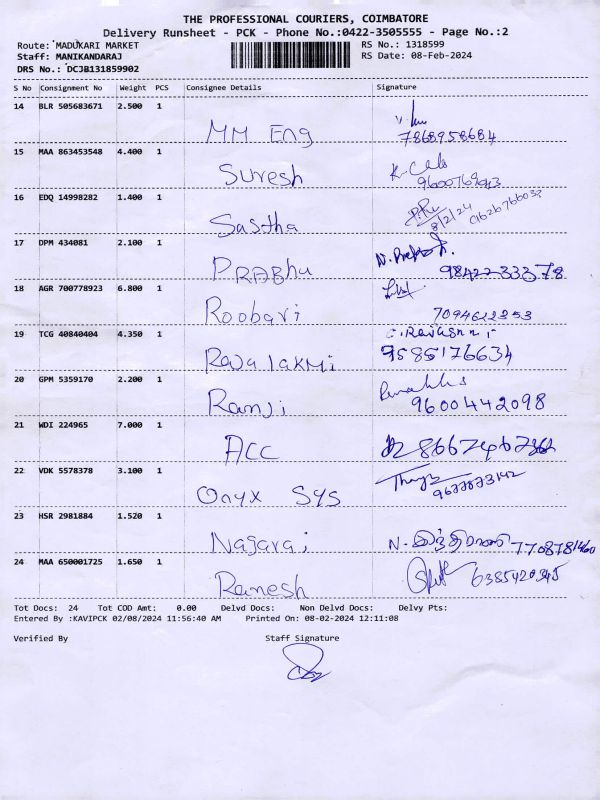 THE PROFESSIONAL COURIERS, COIMBATORE
Delivery Runsheet - PCK - Phone No.:0422-3505555 - Page No.:2
Route: MADUKARI MARKET RS No.: 1318599
Staff: MANIKANDARAJ RS Date: 08-Feb-2024
DRS No.: DCJB131859902
S No Consignment No Weight PCS Consignee Details Signature
14 BLR 505683671 2.500 1 MM Eng 7868958684
15 MAA 863453548 4.400 1 Suresh
16 EDQ 14998282 1.400 1 Sastha 8/2/24
17 DPM 434081 2.100 1 PRABhu 9842233378
18 AGR 700778923 6.800 1 Roobari
19 TCG 40840404 4.350 1 RaJalakMi 9585176634
20 GPM 5359170 2.200 1 Ranji 9600442098
21 WDI 224965 7.000 1 Acc
22 VDK 5578378 3.100 1 Onyx Sys
23 HSR 2981884 1.520 1 Nagarai
24 MAA 650001725 1.650 1 Ramesh 6385420345
Tot Docs: 24 Tot COD Amt: 0.00 Delvd Docs: Non Delvd Docs: Delvy Pts:
Entered By :KAVIPCK 02/08/2024 11:56:40 AM Printed On: 08-02-2024 12:11:08
Verified By Staff Signature